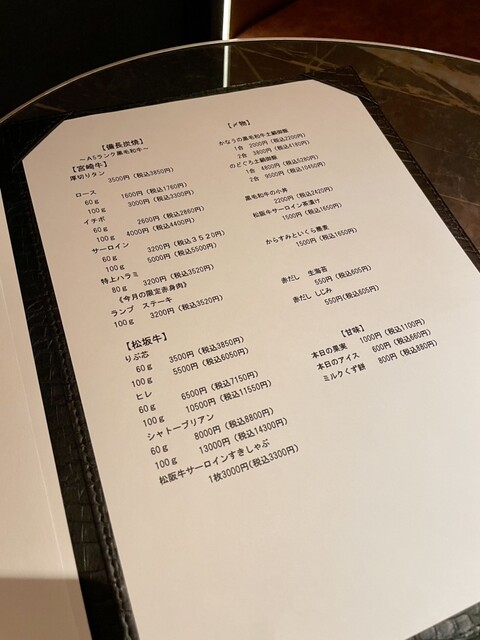 【備長炭焼】
～A5ランク黒毛和牛～
【宮崎牛】
厚切りタン
3500円(税込3850円)
ロース
60g 1600円(税込1760円)
100g 3000円(税込3300円)
イチボ
60g 2600円(税込2860円)
100g 4000円(税込4400円)
サーロイン
60g 3200円(税込３５２０円)
100g 5000円(税込5500円)
特上ハラミ
80g 3200円(税込3520円)
《今月の限定赤身肉》
ランプ ステーキ
100g 3200円(税込3520円)
【松坂牛】
りぶ芯
60g 3500円(税込3850円)
100g 5500円(税込6050円)
ヒレ
60g 6500円(税込7150円)
100g 10500円(税込11550円)
シャトーブリアン
60g 8000円(税込8800円)
100g 13000円(税込14300円)
松阪牛サーロインすきしゃぶ
1枚3000円(税込3300円)
【〆物】
かなうの黒毛和牛土鍋御飯
1合 2000円(税込2200円)
2合 3800円(税込4180円)
のどぐろ土鍋御飯
1合 4800円(税込5280円)
2合 9500円(税込10450円)
黒毛和牛の小丼
2200円(税込2420円)
松阪牛サーロイン茶漬け
1500円(税込1650円)
からすみといくら蕎麦
1500円(税込1650円)
赤だし 生海苔
550円(税込605円)
赤だし しじみ
550円(税込605円)
【甘味】
本日の果実 1000円(税込1100円)
本日のアイス 600円(税込660円)
ミルクくず餅 800円(税込880円)